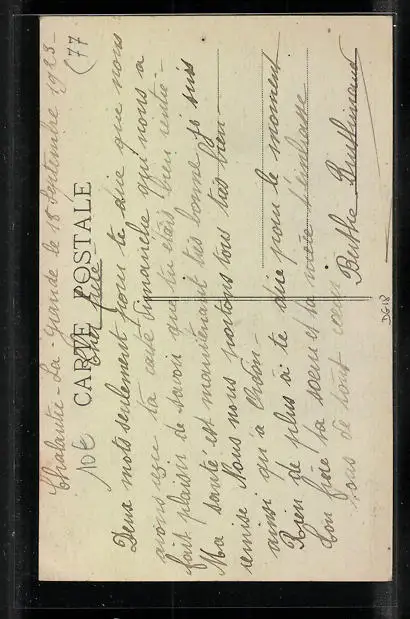 Chalautre-La-Grande le 18 Septembre 1923-
(77
10€
CARTE POSTALE
Cher frère
Deux mots seulement pour te dire que nous
avons reçu ta carte Dimanche qui nous a
fait plaisir de savoir que tu étais bien rentré-
Ma santé est maintenant très bonne je suis
remise Nous nous portons tous très bien-
ainsi qu'à
Rien de plus à te dire pour le moment
Ton frère ta soeur et ta nièce t'embrasse
tous de tout coeur
Berthe
DG18